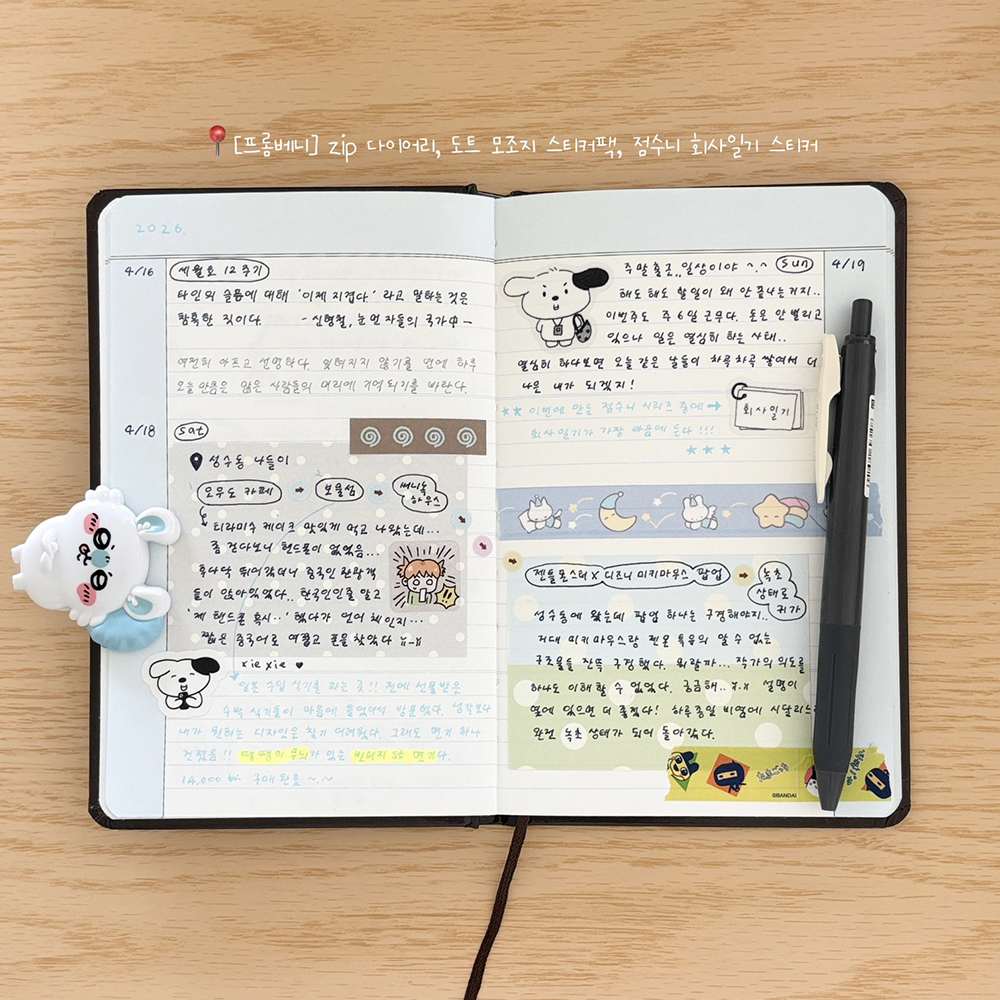 [프롬베니] zip 다이어리, 도트 모조지 스티커팩, 점수니 회사일기 스티커
2026.
4/16 세월호 12주기
타인의 슬픔에 대해 '이제 지겹다' 라고 말하는 것은
참혹한 짓이다. - 신형철, 눈먼 자들의 국가 中 -
여전히 아프고 선명하다. 잊혀지지 않기를 변에 하루
오늘만큼은 많은 사람들의 머리에 기억되기를 바란다.
4/18 sat
성수동 나들이
오우도 카페 보물섬 써니녹
하우스
티라미수 케이크 맛있게 먹고 나왔는데...
좀 걷다보니 핸드폰이 없었음...
후다닥 뛰어갔더니 중국인 관광객
들이 앉아있었다.. 한국인인줄 알고
'제 핸드폰 혹시..' 했다가 언어 체인지...
짧은 중국어로 여쭙고 폰을 찾았다 ㅠ-ㅠ
xie xie ♥
일본 수입 식기를 파는 곳!! 전에 선물받은
수박 식기들이 마음에 들었어서 방문했다. 생각보다
내가 원하는 디자인은 찾기 어려웠다. 그래도 면기 하나
건졌음!! 땡땡이 무늬가 있는 빈티지 st 면기다.
14,000 구매 완료~~
주말출근.. 일상이야 ~.~ sun 4/19
해도 해도 할일이 왜 안 끝나는거지..
이번주도 주6일 근무다. 돈은 안 벌리고
있으나 일은 열심히 하는 사태..
열심히 하다보면 오늘 같은 날들이 차곡차곡 쌓여서 더
나은 내가 되겠지!
★★ 이번에 만든 점수니 시리즈 중에 →
회사일기가 가장 마음에 든다!!!
★★★
회사일기
젠틀몬스터 X 디즈니 미키마우스 팝업
녹초
상태로
귀가
성수동에 왔는데 팝업 하나는 구경해야지..
거대 미키마우스랑 젠몬 특유의 알 수 없는
구조물들 잔뜩 구경했다. 뭐랄까... 작가의 의도를
하나도 이해할 수 없었다. 궁금해.. ㅠ.ㅠ 설명이
옆에 있으면 더 좋겠다! 하루종일 비염에 시달리느
완전 녹초 상태가 되어 돌아갔다.
©BANDAI